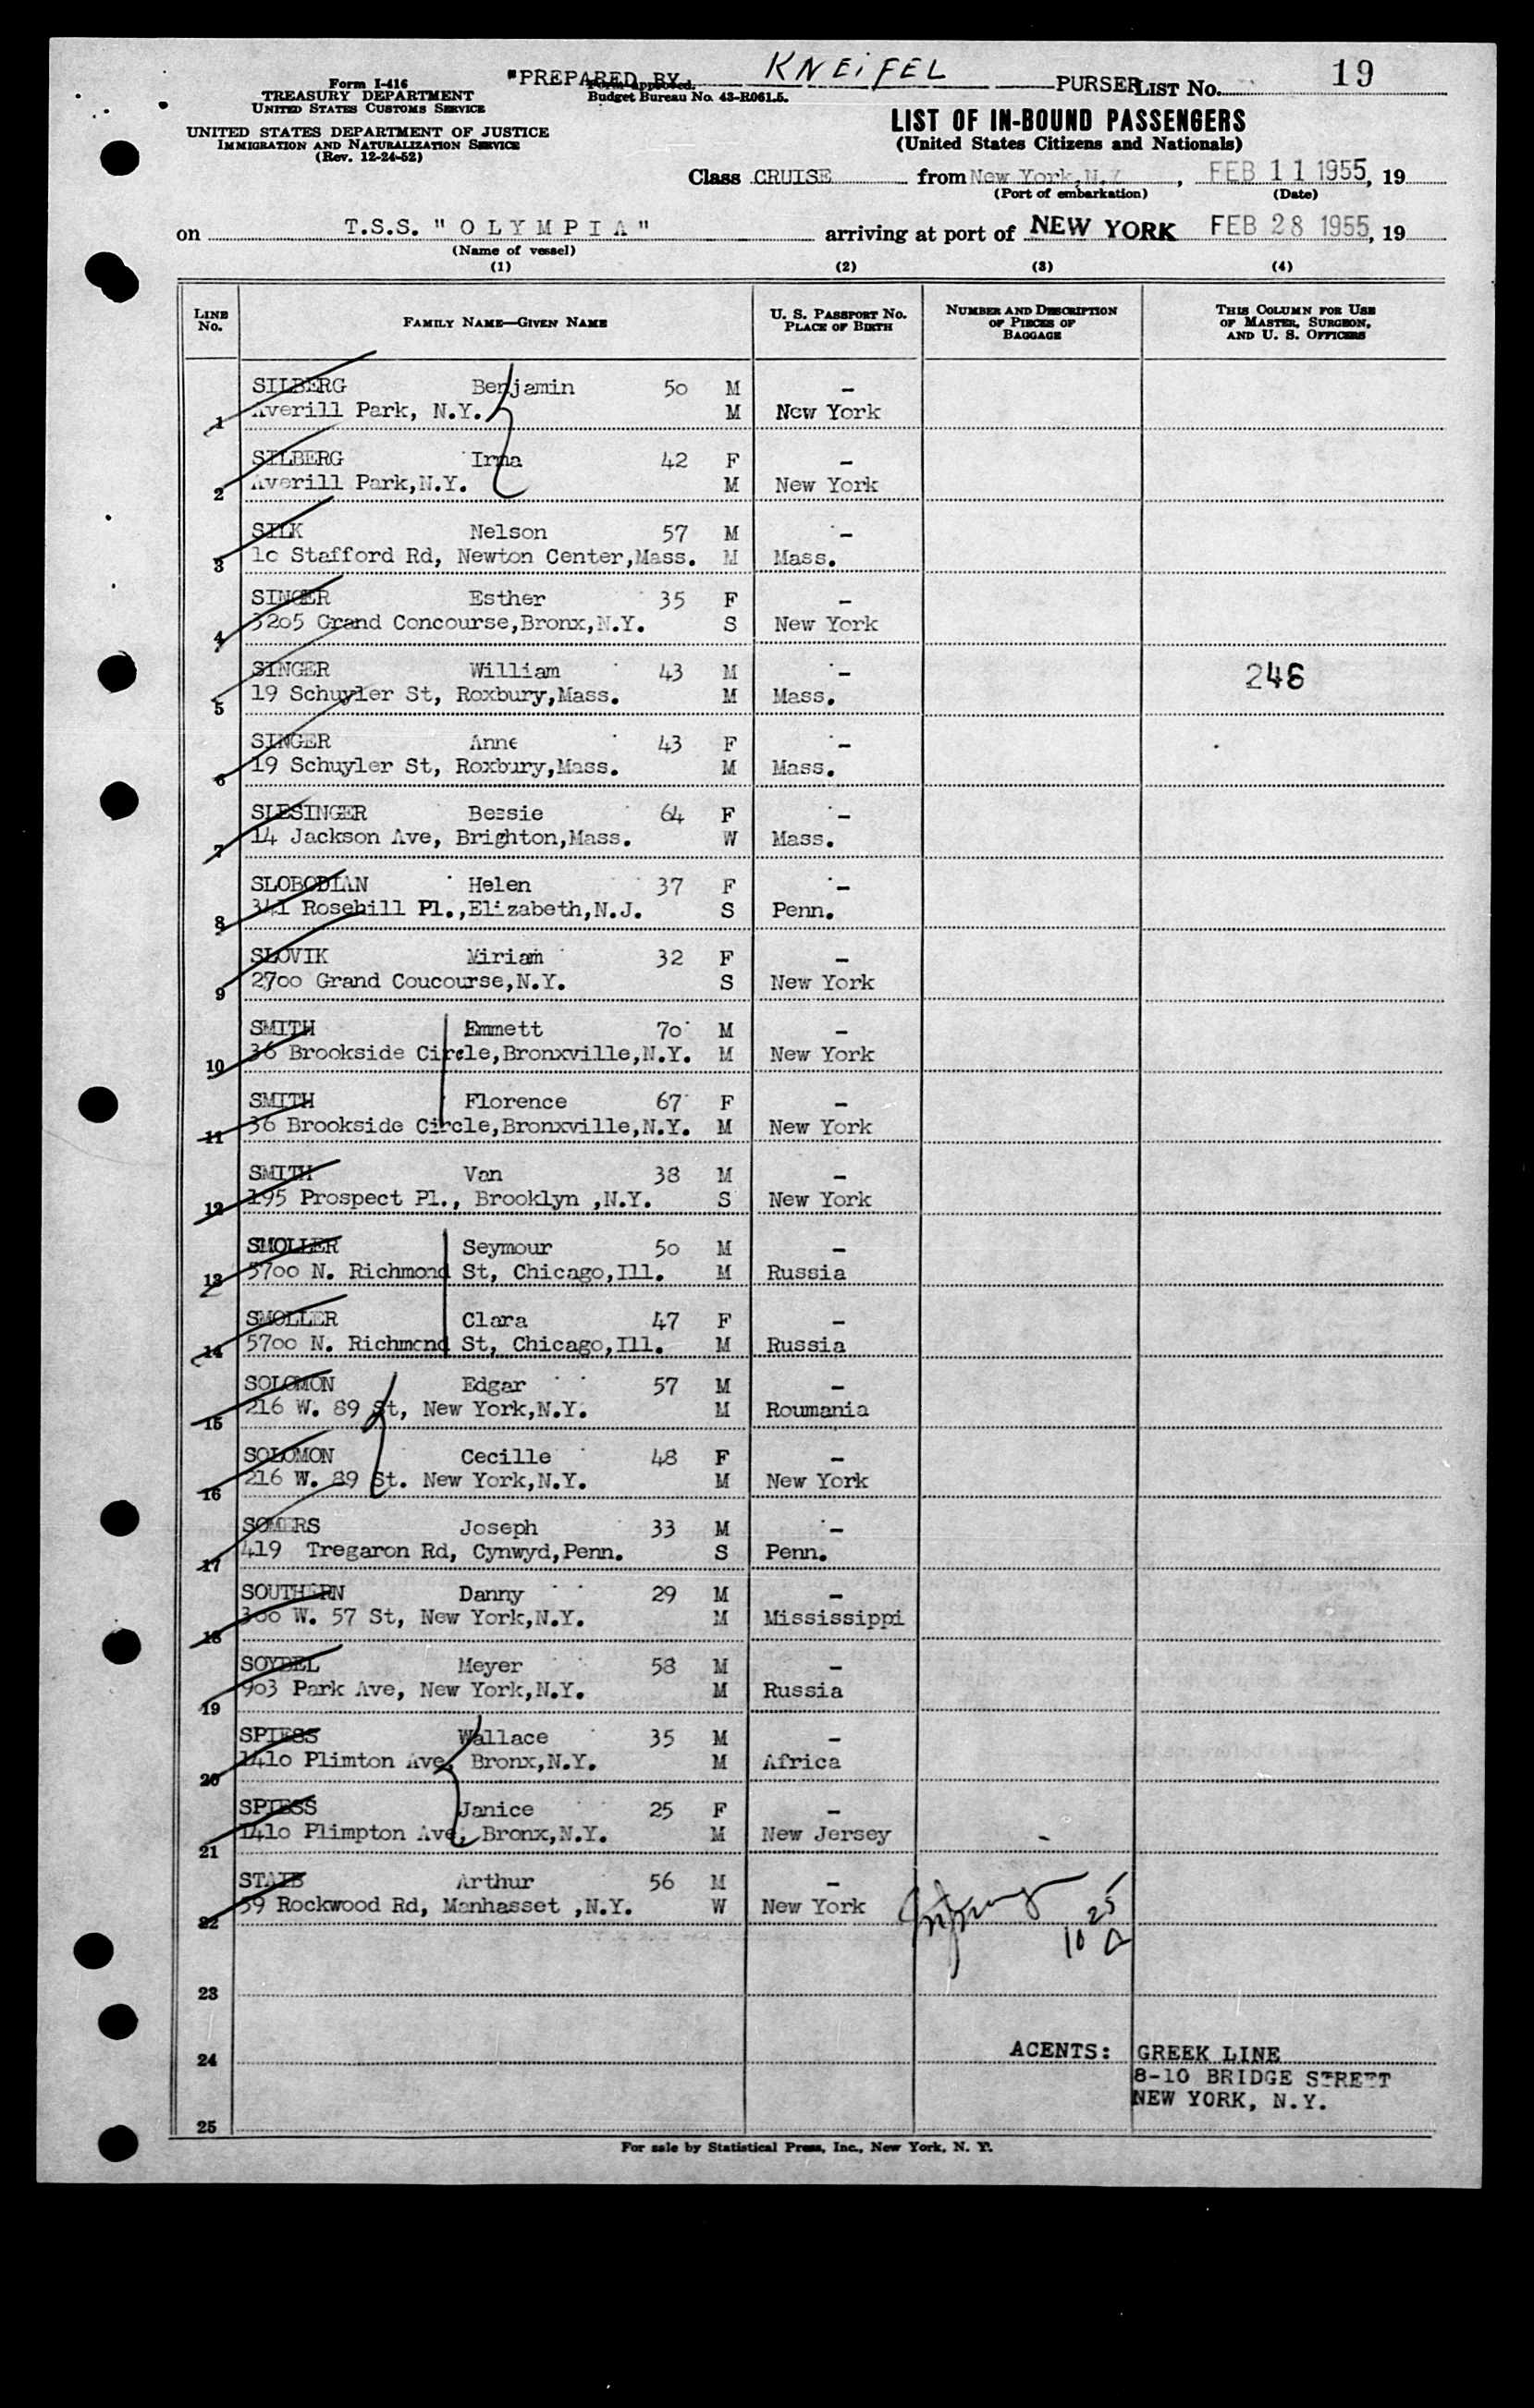 Form I-416
TREASURY DEPARTMENT
UNITED STATES CUSTOMS SERVICE
UNITED STATES DEPARTMENT OF JUSTICE
IMMIGRATION AND NATURALIZATION SERVICE
(Rev. 12-24-52)
"PREPARED BY KNEIFEL PURSER
Form approved.
Budget Bureau No. 43-R061.5.
LIST No. 19
LIST OF IN-BOUND PASSENGERS
(United States Citizens and Nationals)
Class CRUISE from New York, N.Y. , FEB 11 1955, 19
(Port of embarkation) (Date)
on T.S.S. " O L Y M P I A " arriving at port of NEW YORK FEB 28 1955, 19
(Name of vessel)
(1) (2) (3) (4)
LINE No. FAMILY NAME—GIVEN NAME U. S. PASSPORT No. PLACE OF BIRTH NUMBER AND DESCRIPTION OF PIECES OF BAGGAGE THIS COLUMN FOR USE OF MASTER, SURGEON, AND U. S. OFFICERS
SILBERG Benjamin 50 M –
1 Averill Park, N.Y. M New York
SILBERG Irma 42 F –
2 Averill Park,N.Y. M New York
SILK Nelson 57 M –
3 10 Stafford Rd, Newton Center,Mass. M Mass.
SINGER Esther 35 F –
4 3205 Grand Concourse,Bronx,N.Y. S New York
SINGER William 43 M – 246
5 19 Schuyler St, Roxbury,Mass. M Mass.
SINGER Anne 43 F –
6 19 Schuyler St, Roxbury,Mass. M Mass.
SLESINGER Bessie 64 F –
7 14 Jackson Ave, Brighton,Mass. W Mass.
SLOBODIAN Helen 37 F –
8 341 Rosehill Pl.,Elizabeth,N.J. S Penn.
SLOVIK Miriam 32 F –
9 2700 Grand Coucourse,N.Y. S New York
SMITH Emmett 70 M –
10 36 Brookside Circle,Bronxville,N.Y. M New York
SMITH Florence 67 F –
11 36 Brookside Circle,Bronxville,N.Y. M New York
SMITH Van 38 M –
12 195 Prospect Pl., Brooklyn ,N.Y. S New York
SMOLLER Seymour 50 M –
13 5700 N. Richmond St, Chicago,Ill. M Russia
SMOLLER Clara 47 F –
14 5700 N. Richmond St, Chicago,Ill. M Russia
SOLOMON Edgar 57 M –
15 216 W. 89 St, New York,N.Y. M Roumania
SOLOMON Cecille 48 F –
16 216 W. 89 St. New York,N.Y. M New York
SOMERS Joseph 33 M –
17 419 Tregaron Rd, Cynwyd,Penn. S Penn.
SOUTHERN Danny 29 M –
18 300 W. 57 St, New York,N.Y. M Mississippi
SOYBEL Meyer 58 M –
19 903 Park Ave, New York,N.Y. M Russia
SPIESS Wallace 35 M –
20 1410 Plimton Ave, Bronx,N.Y. M Africa
SPIESS Janice 25 F –
21 1410 Plimpton Ave, Bronx,N.Y. M New Jersey
STAIB Arthur 56 M –
22 59 Rockwood Rd, Manhasset ,N.Y. W New York
10 25
23
24
ACENTS: GREEK LINE
8-10 BRIDGE STREET
NEW YORK, N.Y.
25
For sale by Statistical Press, Inc., New York, N. Y.